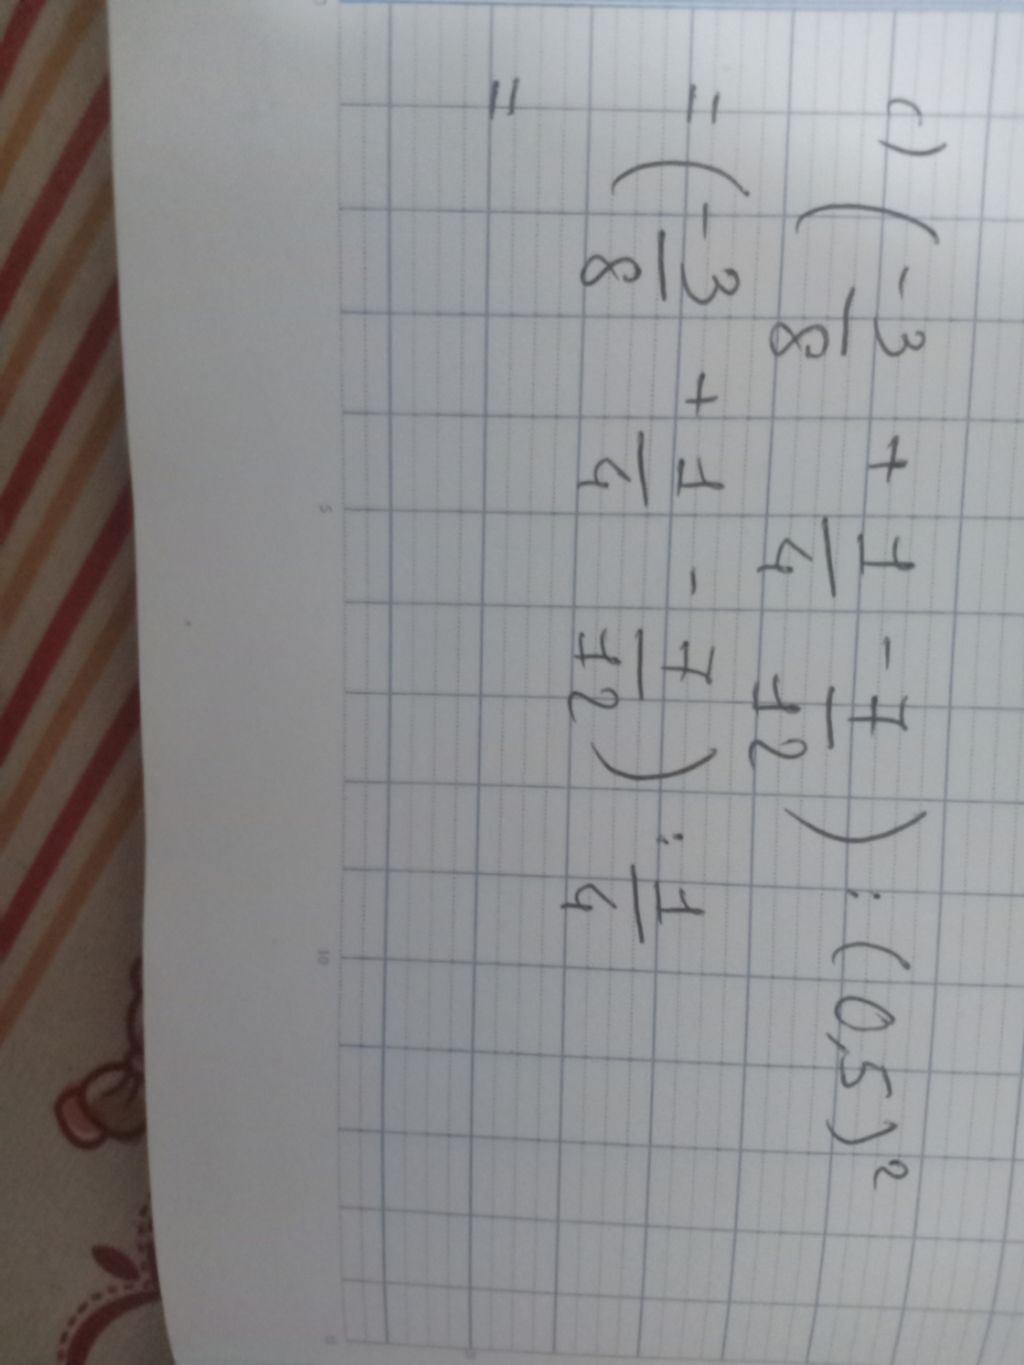 c) (-3/8 + 1/4 - 7/12) : (0,5)²
= (-3/8 + 1/4 - 7/12) : 1/4
=
5
10